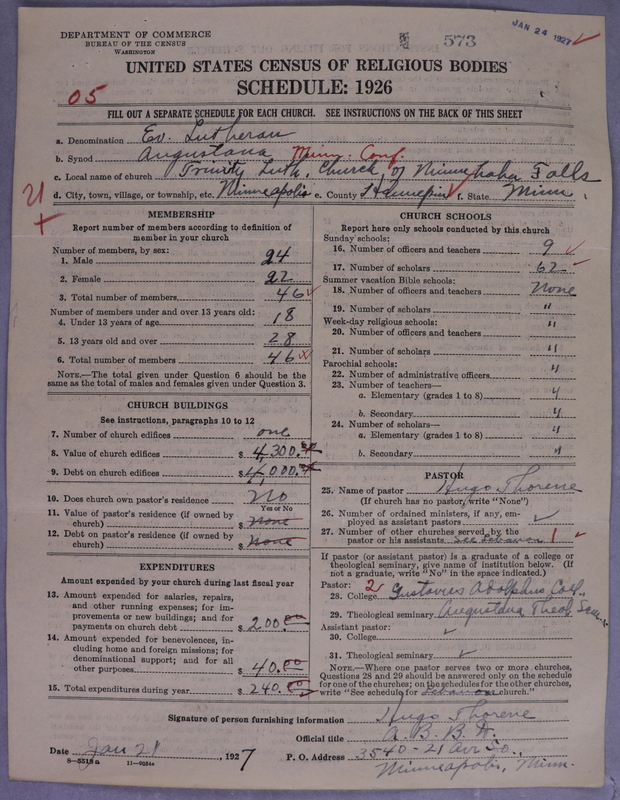 DEPARTMENT OF COMMERCE
BUREAU OF THE CENSUS
WASHINGTON
573
JAN 24 1927
UNITED STATES CENSUS OF RELIGIOUS BODIES
SCHEDULE: 1926
05
FILL OUT A SEPARATE SCHEDULE FOR EACH CHURCH. SEE INSTRUCTIONS ON THE BACK OF THIS SHEET
a. Denomination Ev. Lutheran
b. Synod Augustana Minn. Conf.
c. Local name of church Trinity Luth. Church, of Minnehaha Falls
d. City, town, village, or township, etc. Minneapolis e. County Hennepin f. State Minn.
21
MEMBERSHIP
Report number of members according to definition of
member in your church
Number of members, by sex:
1. Male 24
2. Female 22
3. Total number of members 46
Number of members under and over 13 years old:
4. Under 13 years of age 18
5. 13 years old and over 28
6. Total number of members 46
NOTE.—The total given under Question 6 should be
same as the total of males and females given under Question 3.
CHURCH BUILDINGS
See instructions, paragraphs 10 to 12
7. Number of church edifices one
8. Value of church edifices $ 4,300.
9. Debt on church edifices $ 4,000.
10. Does church own pastor's residence No
Yes or No
11. Value of pastor's residence (if owned by
church) $ None
12. Debt on pastor's residence (if owned by
church) $ None
EXPENDITURES
Amount expended by your church during last fiscal year
13. Amount expended for salaries, repairs,
and other running expenses; for im-
provements or new buildings; and for
payments on church debt $ 200.00
14. Amount expended for benevolences, in-
cluding home and foreign missions; for
denominational support; and for all
other purposes $ 40.00
15. Total expenditures during year $ 240.00
CHURCH SCHOOLS
Report here only schools conducted by this church
Sunday schools:
16. Number of officers and teachers 9
17. Number of scholars 62
Summer vacation Bible schools:
18. Number of officers and teachers None
19. Number of scholars "
Week-day religious schools:
20. Number of officers and teachers "
21. Number of scholars "
Parochial schools:
22. Number of administrative officers "
23. Number of teachers—
a. Elementary (grades 1 to 8) "
b. Secondary "
24. Number of scholars—
a. Elementary (grades 1 to 8) "
b. Secondary "
PASTOR
25. Name of pastor Hugo Thorene
(If church has no pastor, write "None")
26. Number of ordained ministers, if any, em-
ployed as assistant pastors
27. Number of other churches served by the
pastor or his assistants See Lebanon 1
If pastor (or assistant pastor) is a graduate of a college or
theological seminary, give name of institution below. (If
not a graduate, write "No" in the space indicated.)
Pastor: 2
28. College Gustavus Adolphus Coll.
29. Theological seminary Augustana Theol. Sem.
Assistant pastor:
30. College
31. Theological seminary
NOTE.—Where one pastor serves two or more churches,
Questions 28 and 29 should be answered only on the schedule
for one of the churches; on the schedules for the other churches,
write "See schedule for Lebanon church."
Signature of person furnishing information Hugo Thorene
Official title A. B. B. D.
Date Jan 21, 1927 P. O. Address 3540-21 Av. So.,
Minneapolis, Minn.
8-5518a 11-9034